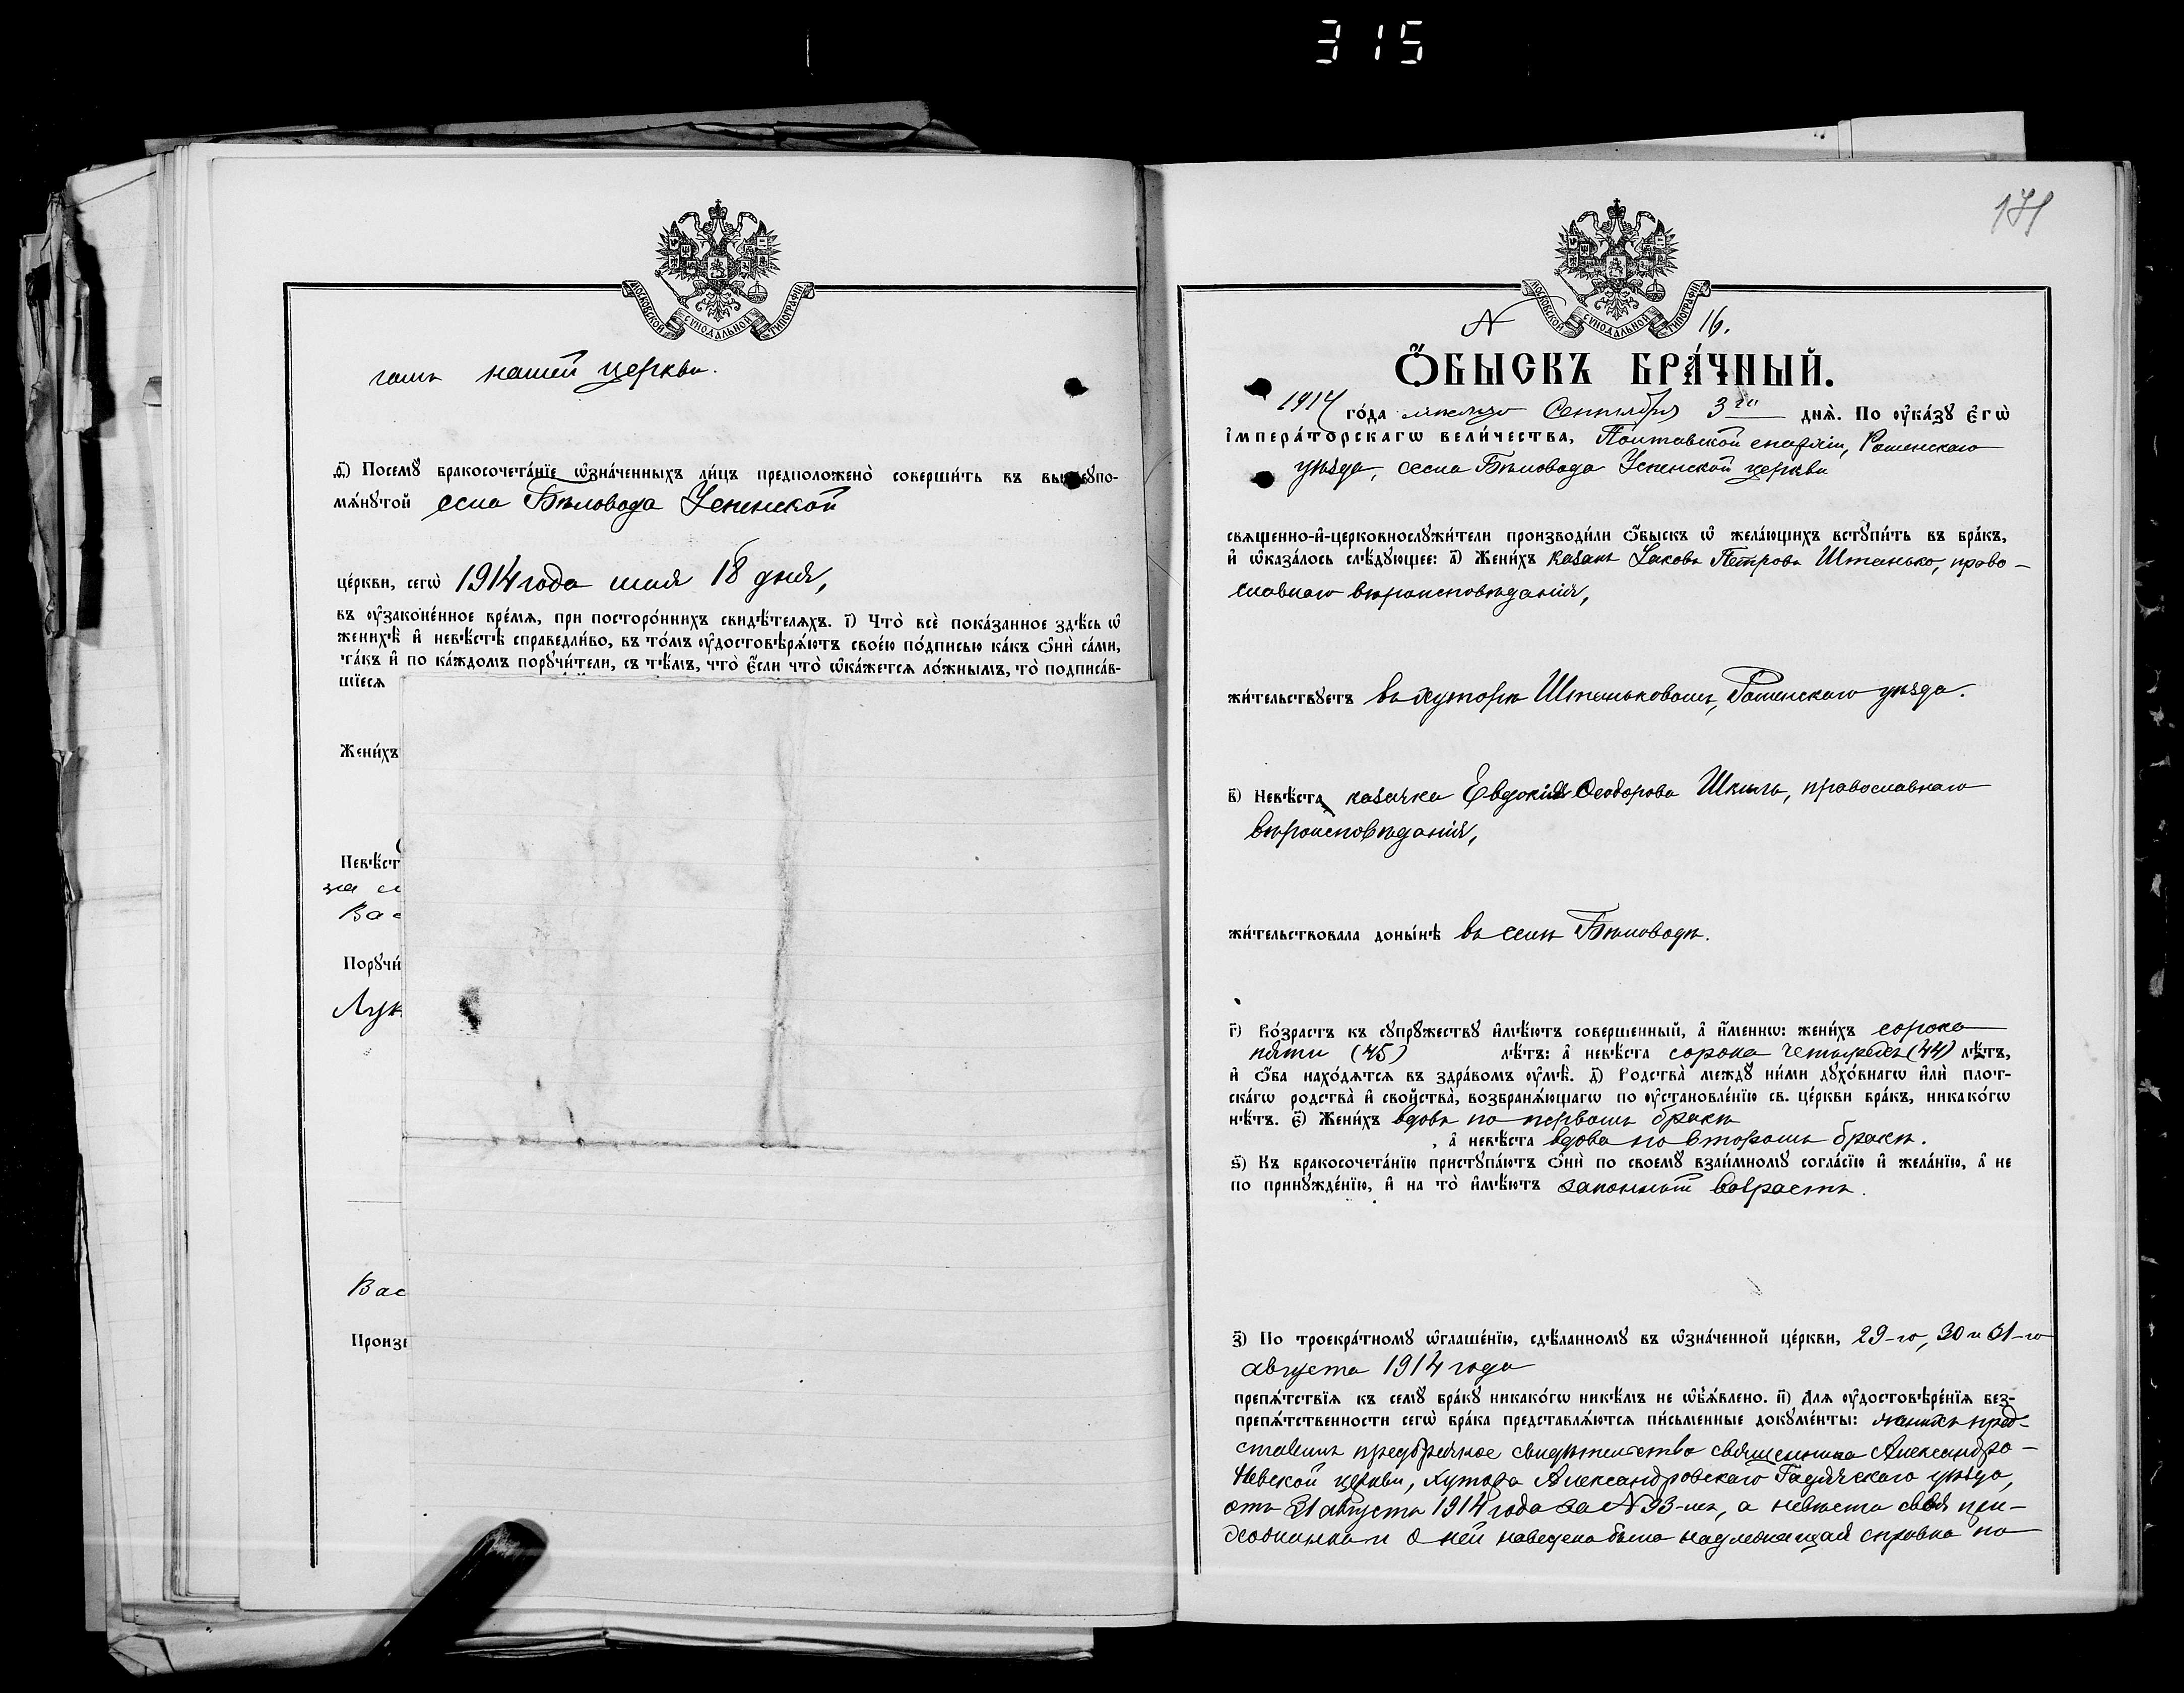 315
МОСКОВСКОЙ СѴНОДАЛЬНОЙ ТИПОГРАФІИ
гамъ нашей церкви.
д҃) Посемꙋ бракосочета́нїе ѡ҆зна́ченныхъ ли́цъ предположено̀ соверши́ть въ вы ꙋпо-
мѧ́нꙋтой села Бѣловода Успенской
це́ркви, сегѡ̀ 1914 года мая 18 дня,
въ ᲂу҆зако́ненное вре́мѧ, при посторо́ннихъ свидѣ́телѧхъ. і҃) Что̀ всѐ пока́занное здѣ́сь ѡ҆
женихѣ̀ и҆ невѣ́стѣ справедли́во, въ то́мъ ᲂу҆достовѣрѧ́ютъ свое́ю по́дписью ка́къ ѻ҆нѝ са́ми,
та́къ и҆ по ка́ждомъ порꙋчи́тели, съ тѣ́мъ, что̀ є҆́сли что̀ ѡ҆ка́жетсѧ ло́жнымъ, то̀ подписа́в-
шїесѧ
Жени́хъ
Невѣ́ст
за
Вас
Порꙋчи́
Лук
Вас
Произв
171
МОСКОВСКОЙ СѴНОДАЛЬНОЙ ТИПОГРАФІИ
N 16.
Ѻ҆БЫСКЪ БРА́ЧНЫЙ.
1914 го́да мѣсяца Сентября 3го днѧ̀. По ᲂу҆ка́зꙋ є҆гѡ̀
і҆мпера́торскагѡ вели́чества, Полтавской епархіи, Роменскаго
уѣзда, села Бѣловода Успенской церкви
свѧщенно-и҆-церковнослꙋжи́тели производи́ли ѻ҆́быскъ ѡ҆ жела́ющихъ вступи́ть въ бра́къ,
и҆ ѡ҆каза́лось слѣ́дꙋющее: а҃) Жени́хъ казакъ Іаковъ Петровъ Штанько, право-
славнаго вѣроисповѣданія,
жи́тельствꙋетъ въ хуторѣ Штаньковомъ, Роменскаго уѣзда.
в҃) Невѣ́ста казачка Евдокія Ѳеодорова Шкиль, православнаго
вѣроисповѣданія,
жи́тельствовала доны́нѣ въ селѣ Бѣловодѣ.
г҃) Во́зрастъ къ сꙋпрꙋ́жествꙋ и҆мѣ́ютъ соверше́нный, а҆ и҆́меннѡ: жени́хъ сорока
пяти (45) лѣ́тъ: а҆ невѣ́ста сорока четырехъ (44) лѣ́тъ,
и҆ ѻ҆́ба нахо́дѧтсѧ въ здра́вомъ ᲂу҆мѣ̀. д҃) Родства̀ междꙋ̀ ни́ми дꙋхо́внагѡ и҆лѝ пло́т-
ска́гѡ родства̀ и҆ сво́йства, возбранѧ́ющагѡ по ᲂу҆становле́нїю св. це́ркви бра́къ, никако́гѡ
нѣ́тъ. є҃) Жени́хъ вдовъ по первомъ бракѣ
, а҆ невѣ́ста вдова по второмъ бракѣ.
ѕ҃) Къ бракосочета́нїю пристꙋпа́ютъ ѻ҆нѝ по своемꙋ̀ взаи́мномꙋ согла́сїю и҆ жела́нїю, а҆ не
по принꙋжде́нїю, и҆ на то̀ и҆мѣ́ютъ законный возрастъ.
з҃) По троекра́тномꙋ ѡ҆глаше́нїю, сдѣ́ланномꙋ въ ѡ҆зна́ченной це́ркви, 29-го, 30 и 31-го
августа 1914 года
препѧ́тствїѧ къ семꙋ̀ бра́кꙋ никако́гѡ никѣ́мъ не ѡ҆б̾ѧ́влено. и҃) Длѧ ᲂу҆достовѣре́нїѧ без-
препѧ́тственности сегѡ̀ бра́ка представлѧ́ютсѧ пи́сьменные докꙋме́нты: женихъ пред-
ставилъ предбрачное свидѣтельство священника Александро-
Невской церкви, хутора Александровскаго Гадячскаго уѣзда,
отъ 31 августа 1914 года за N 93-мъ, а невѣста своя при-
хожанка и о ней наведена была надлежащая справка по